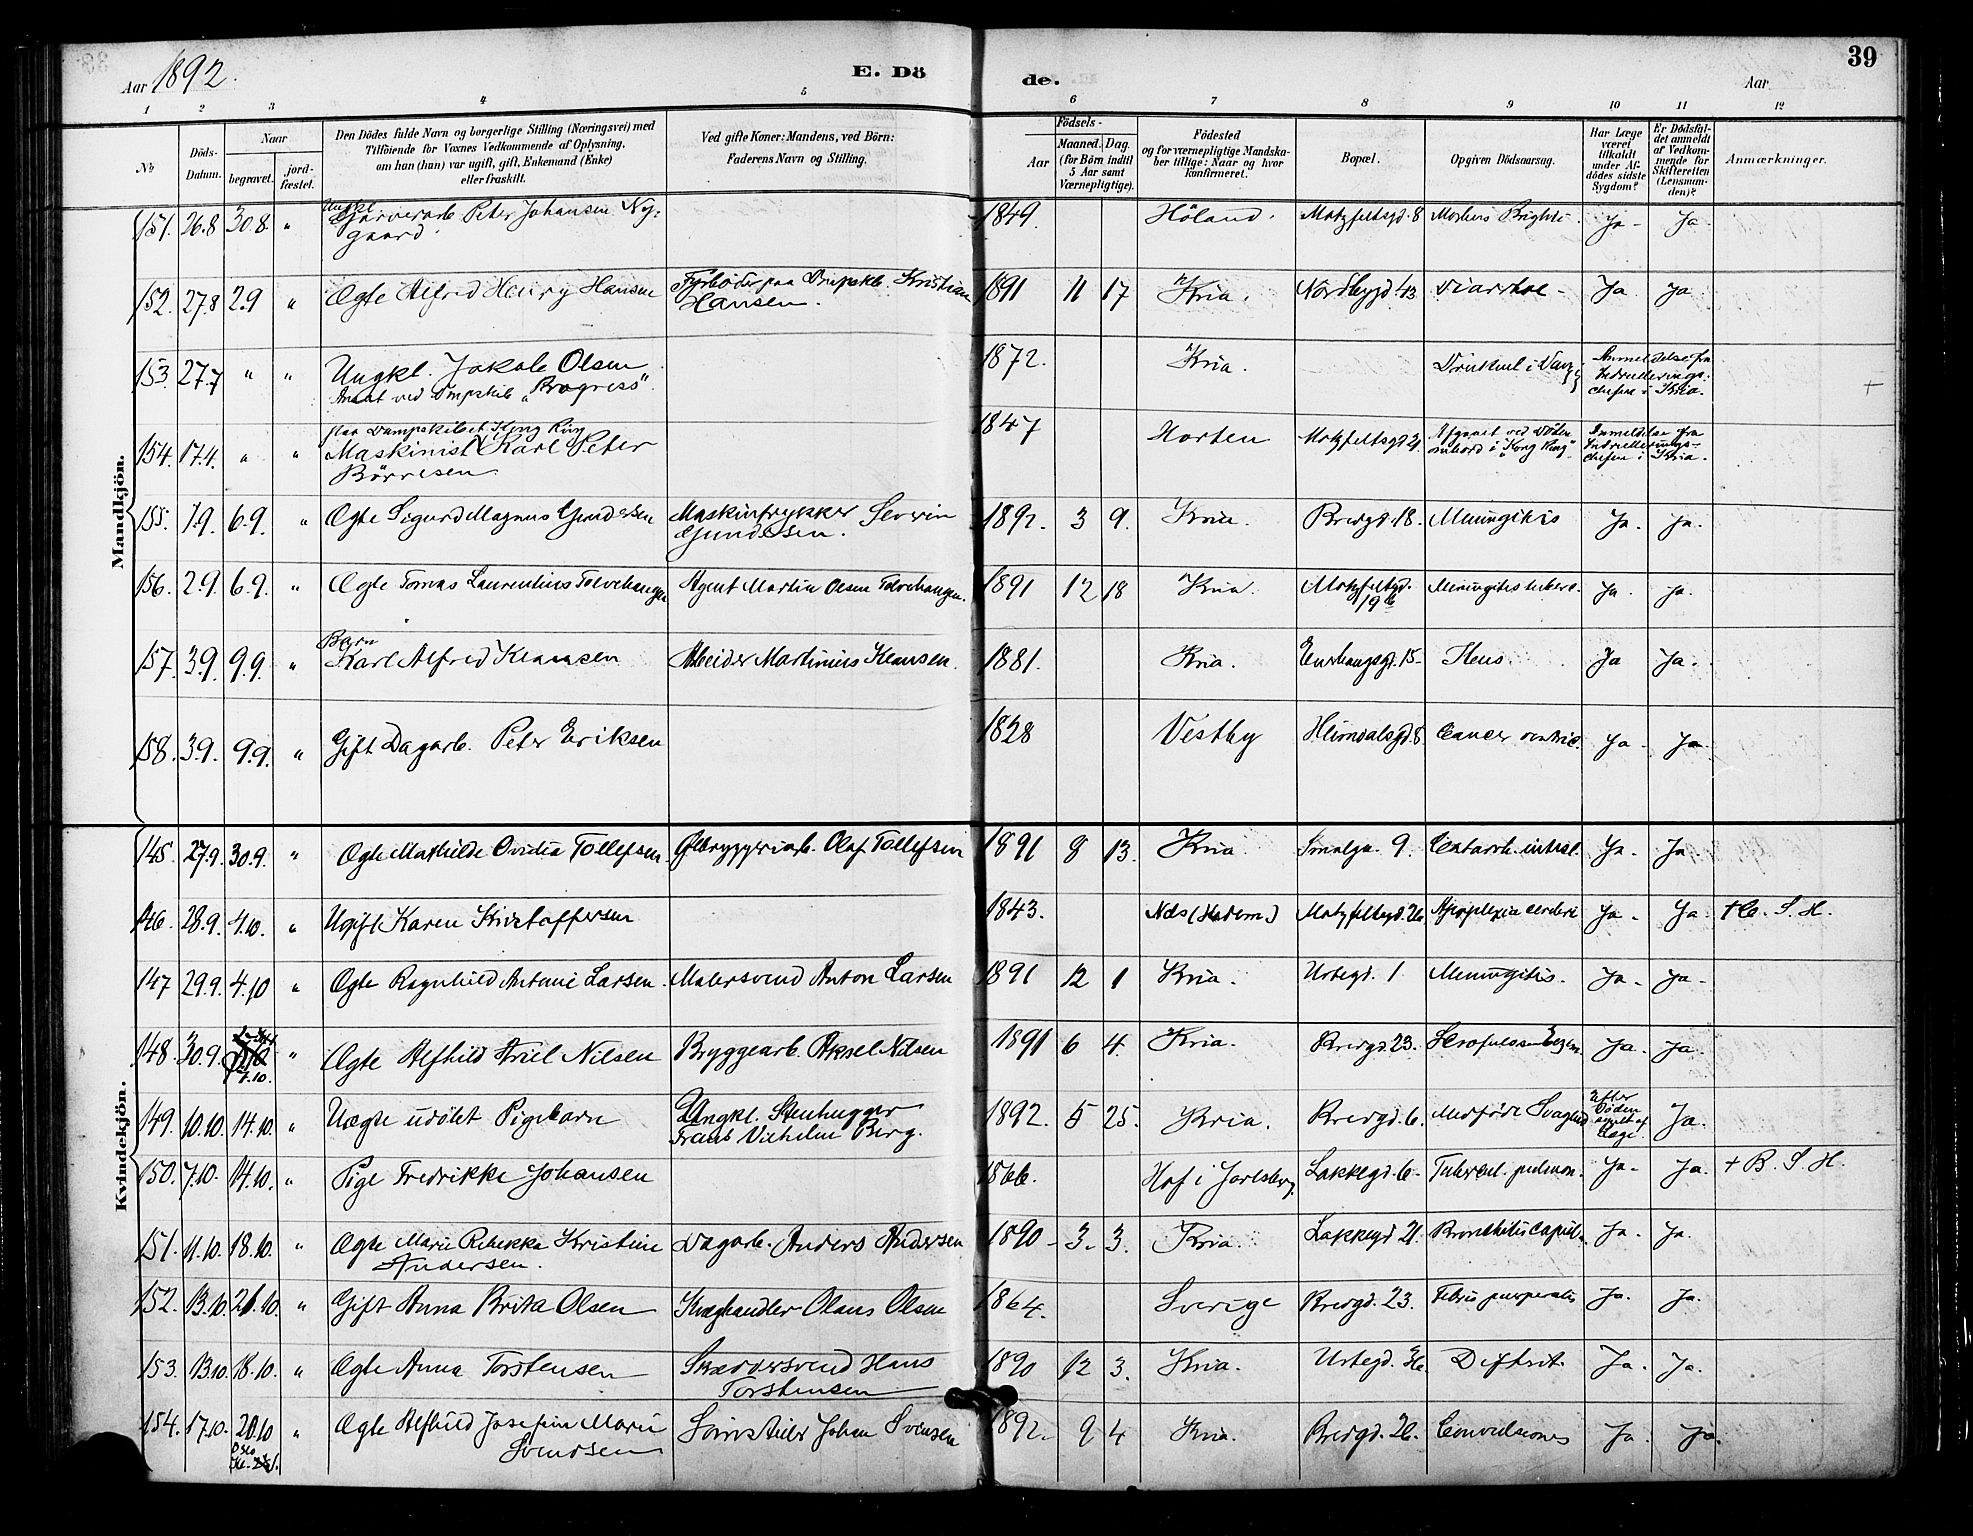 Aar 1892.
E. Dö
de.
Aar
39
1 2 3 4 5 6 7 8 9 10 11 12
No
Döds-Datum.
Naar
begravet.
jord-fæstet.
Den Dödes fulde Navn og borgerlige Stilling (Næringsvei) med
Tilföiende for Voxnes Vedkommende af Oplysning,
om han (hun) var ugift, gift, Enkemand (Enke)
eller fraskilt.
Ved gifte Koner: Mandens, ved Börn:
Faderens Navn og Stilling.
Födsels-
Aar
Maaned. Dag.
(for Börn indtil
5 Aar samt
Værnepligtige).
Födested
og for værnepligtige Mandska-
ber tillige: Naar og hvor
konfirmeret.
Bopæl.
Opgiven Dödsaarsag.
Har Læge
været
tilkaldt
under Af-
dödes sidste
Sygdom?
Er Dödsfal-
det anmeldt
af Vedkom-
mende for
Skifteretten
(Lensman-
den)?
Anmærkninger.
Mandkjön.
151. 26.8 30.8. " Ungkl. Garverarb. Peter Johansen Ny-
gaard. 1849. Höland. Motzfeltsgd. 8 Morbus Brightii Ja - Ja -
152. 27.8 2.9 " Ægte Alfred Henry Hansen Fyrböder paa Dmpskb. Kristian
Hansen. 1891 11 17 Kria. Nordbygd. 43 Diarrhoe - Ja Ja
153. 27.7 " " Ungkl. Jakob Olsen
ved Dmpskib "Progress". 1872. Kria. Druknet i Anmeldelse fra
Indrullerings-
chefen i Kria. +
154. 17.4. " " Maskinist Karl Peter
Börresen 1847 Horten Motzfeltsgd. 21. Afgaaet ved Döden
ombord i "Kong Ring" Anmeldelse fra
Indrullerings-
chefen i Kria.
155. 1.9. 6.9. " Ægte Sigurd Magnus Gundersen Maskintrykker Severin
Gundersen. 1892. 3 9. Kria. Bredgd. 18. Meningitis Ja - Ja.
156. 2.9. 6.9. " Ægte Tomas Laurentius Tolvehaugen Agent Martin Olsen Tolvehaugen. 1891 12 18 Kria. Motzfeltgd.
19b Meningitis tuberc. Ja. Ja.
157. 3.9. 9.9. " Barn
Karl Alfred Klausen Arbeider Martinius Klausen. 1881. Kria. Enerhaugsgd. 15 - Ileus. Ja Ja.
158. 3.9. 9.9. " Gift Dagarb. Peter Eriksen 1828 Vestby Heimdalsgd. 8. Cancer ventric. Ja - Ja.
Kvindekjön.
145. 27.9. 30.9. " Ægte Mathilde Ovidia Tollefsen Ølbryggeriarb. Olaf Tollefsen 1891 8 13. Kria. Smalgn. 9. Catarrh. intest. Ja - Ja
146. 28.9. 4.10. " Ugift Karen Kristoffersen 1843. Næs (Hedem.) Motzfeltsgd. 26 Apoplexia cerebri Ja - Ja. + C. S. H.
147 29.9. 4.10 " Ægte Ragnhild Antonie Larsen. Malersvend Anton Larsen 1891 12 1 Kria. Urtegd. 1 Meningitis. Ja - Ja -
148. 30.9. 7.10. " Ægte Alfhild Ariel Nilsen Bryggearb. Aksel Nilsen 1891 6 4. Kria. Bredgd. 23. Scrofulosis Eczem. Ja. Ja.
149. 10.10. 14.10. " Uægte udöbt Pigebarn Ungkl. Stenhugger
Frans Vilhelm Berg. 1892. 5 25. Kria. Bredgd. 6. Medfödt Svaghed Efter
Döden
synet af
Læge. Ja.
150. 7.10. 14.10. " Pige Fredrikke Johansen 1866. Hof i Jarlsberg. Lakkegd. 6 - Tubercul. pulmon. Ja - Ja. + B. S. H.
151. 11.10. 18.10. " Ægte Marie Rebekka Kristine
Andersen. Dagarb. Anders Andersen 1890 - 3. 3. Kria. Lakkegd 21. Bronchitis capill. Ja. Ja.
152. 13.10. 21.10. " Gift Anna Brita Olsen Kvæghandler Olaus Olsen 1864. Sverige Bredgd. 23. Febris puerperalis Ja. Ja.
153. 13.10. 18.10. " Ægte Anna Torstensen Skræddersvend Hans
Torstensen 1890 12 3. Kria. Urtegd. 36. Difterit. Ja. Ja.
154. 17.10. 20.10 " Ægte Alfhild Josefine Marie
Svendsen Johan Svensen 1892. 9 4 Kria. Bredgd. 26. Convulsiones Ja. Ja.